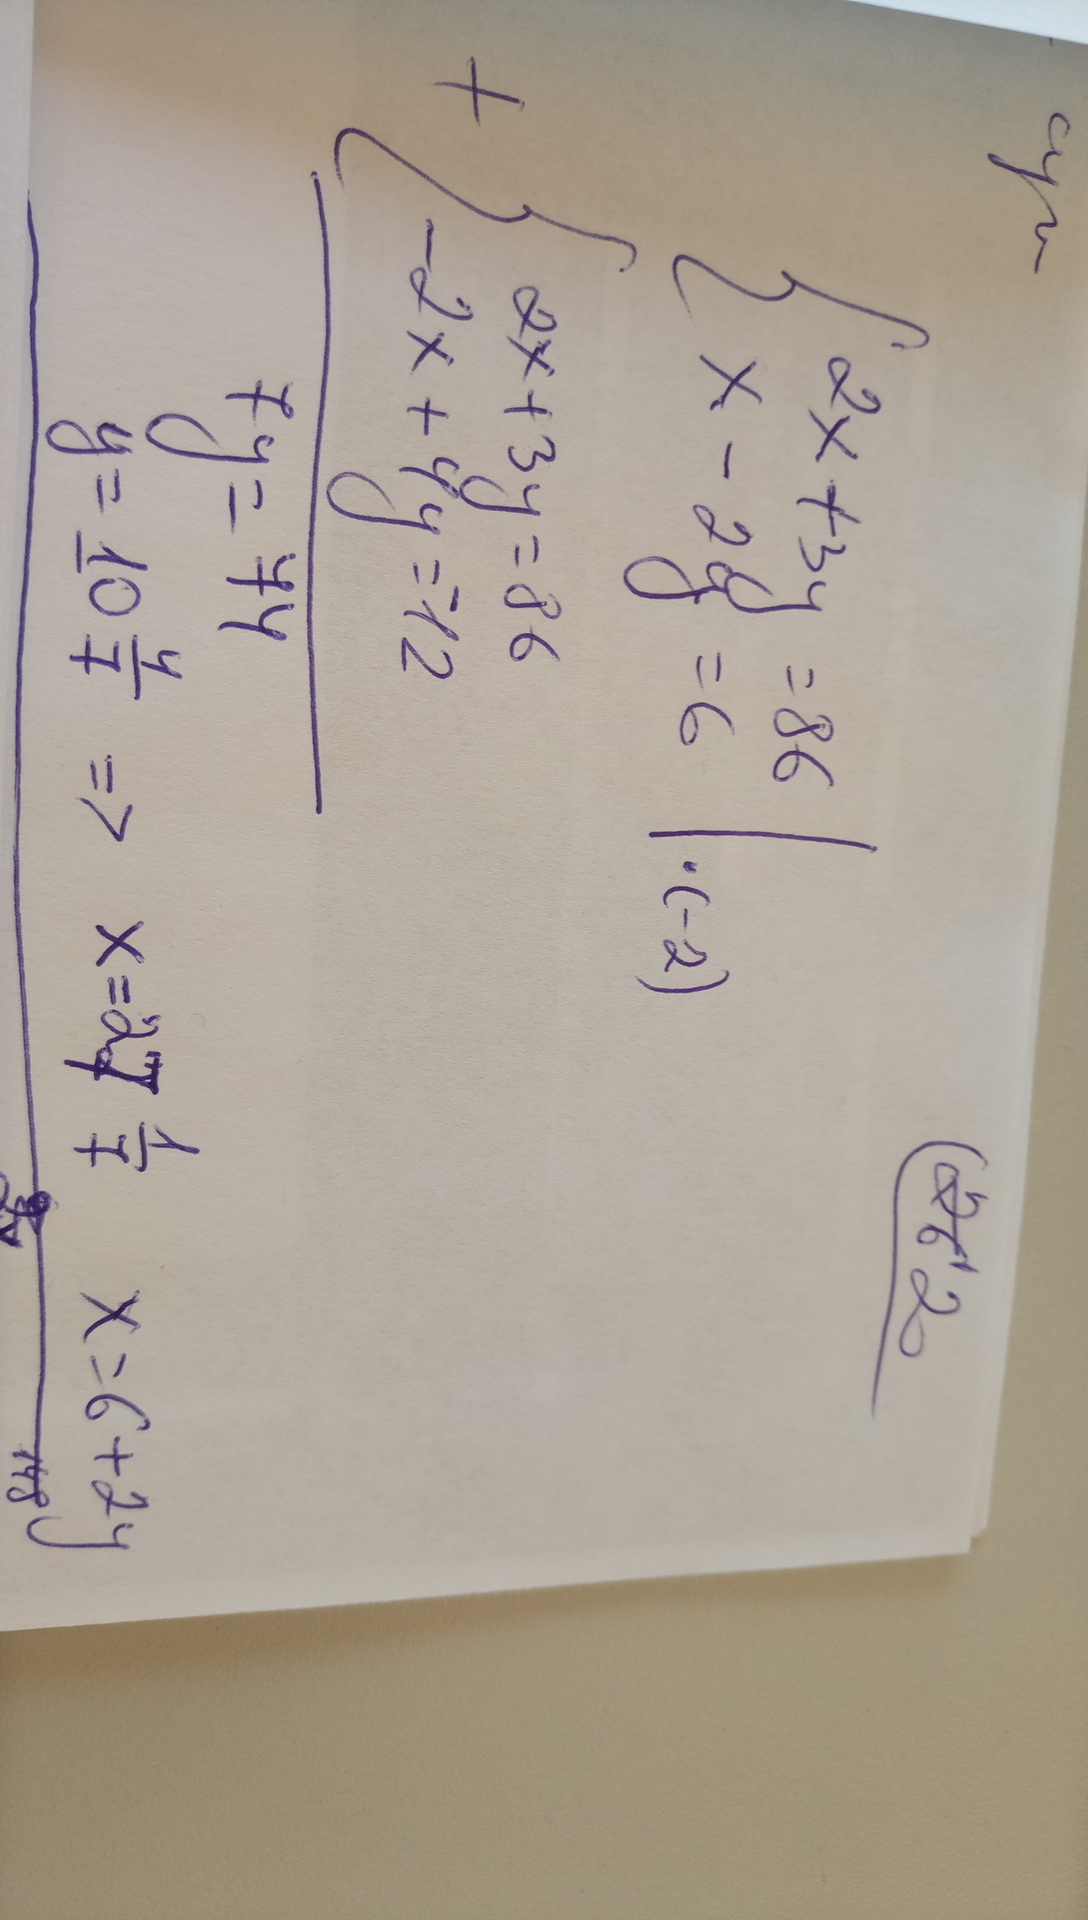 2x + 3y = 86
x - 2y = 6 | ·(-2)
+
2x + 3y = 86
-2x + 4y = -12
7y = 74
y = 10 4/7 => x = 27 1/7 x = 6 + 2y
148